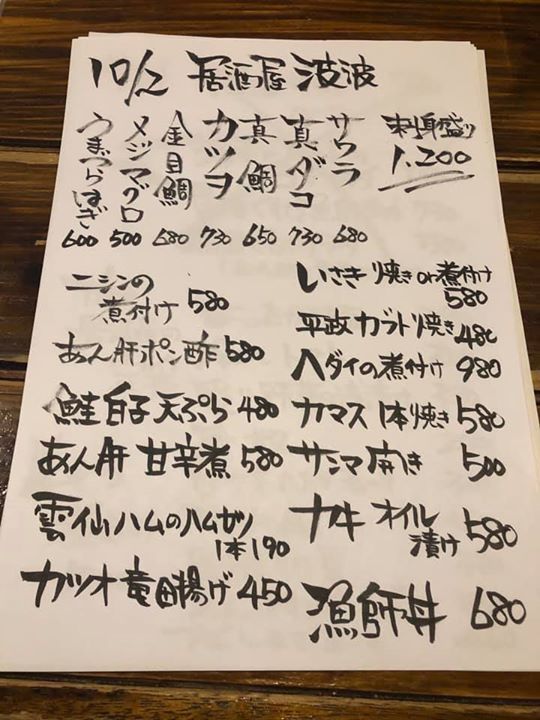 10/2 居酒屋 波波
刺身盛り
1,200
サワラ 680
真ダコ 730
真鯛 650
カツヲ 730
金目鯛 680
メジマグロ 500
うまづらはぎ 600
いさき焼きor煮付け
580
平政カブト焼き 480
ヘダイの煮付け 980
カマス 1本焼き 580
サンマ開き 500
カキ オイル
漬け 580
漁師丼 680
ニシンの
煮付け 580
あん肝ポン酢 580
鮭白子天ぷら 480
あん肝 甘辛煮 580
雲仙ハムのハムカツ
1本190
カツオ竜田揚げ 450